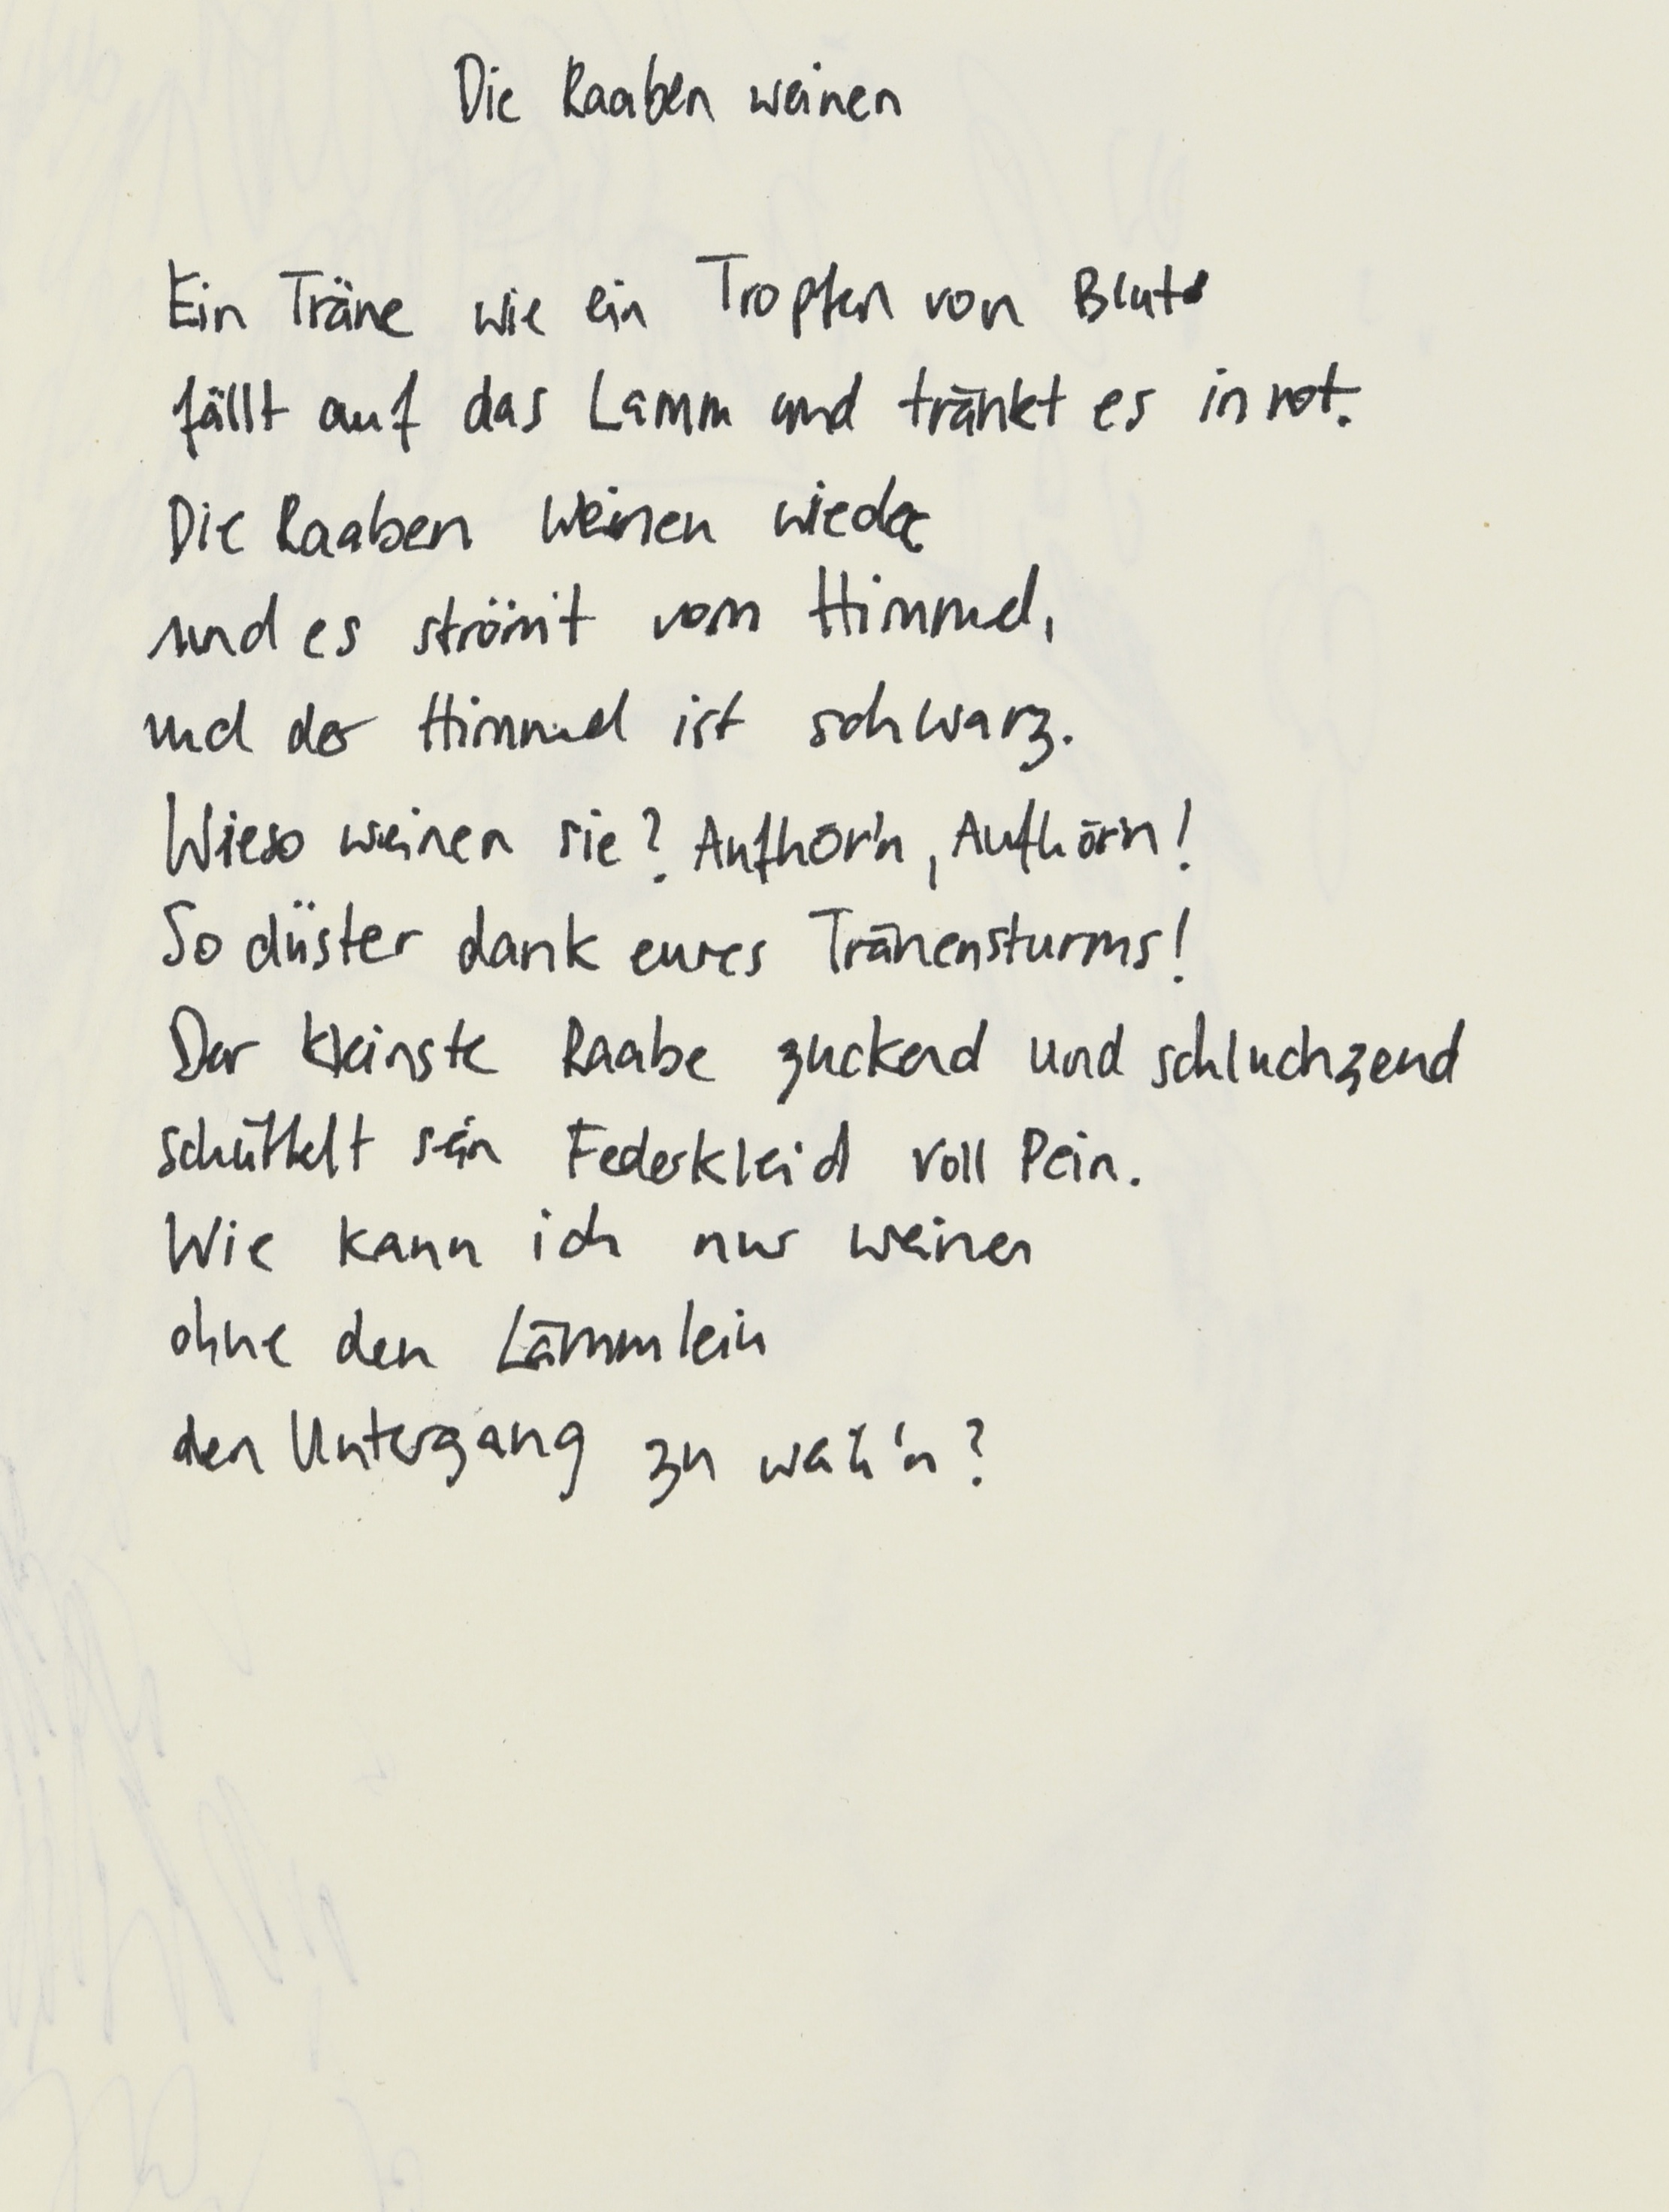 Die Raaben weinen
Ein Träne wie ein Tropfen von Blut
fällt auf das Lamm und tränkt es in rot.
Die Raaben weinen wieder
und es strömt vom Himmel,
und der Himmel ist schwarz.
Wieso weinen sie? Aufhör'n, Aufhör'n!
So düster dank eures Tränensturms!
Der kleinste Raabe zuckend und schluchzend
schüttelt sein Federkleid voll Pein.
Wie kann ich nur weinen
ohne den Lämmlein
den Untergang zu